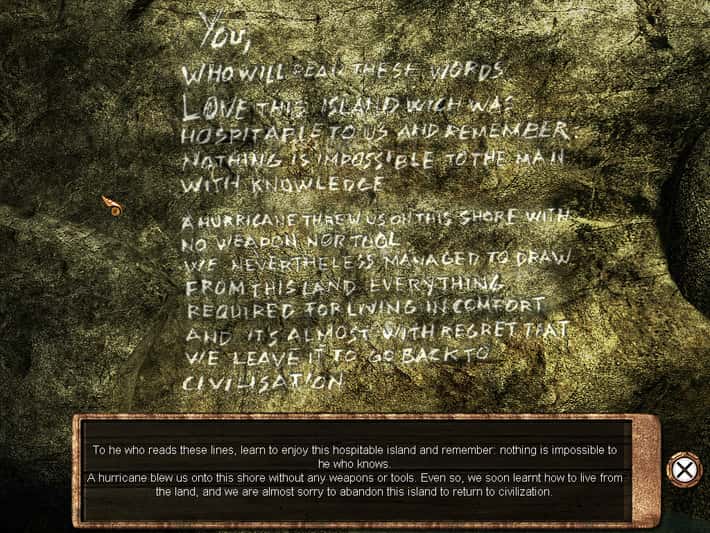 YOU,
WHO WILL READ THESE WORDS
LOVE THIS ISLAND WICH WAS
HOSPITABLE TO US AND REMEMBER:
NOTHING IS IMPOSSIBLE TO THE MAN
WITH KNOWLEDGE
A HURRICANE THREW US ON THIS SHORE WITH
NO WEAPON NOR TOOL.
WE NEVERTHELESS MANAGED TO DRAW
FROM THIS LAND EVERYTHING
REQUIRED FOR LIVING IN COMFORT
AND IT'S ALMOST WITH REGRET THAT
WE LEAVE IT TO GO BACK TO
CIVILISATION
To he who reads these lines, learn to enjoy this hospitable island and remember: nothing is impossible to
he who knows.
A hurricane blew us onto this shore without any weapons or tools. Even so, we soon learnt how to live from
the land, and we are almost sorry to abandon this island to return to civilization.